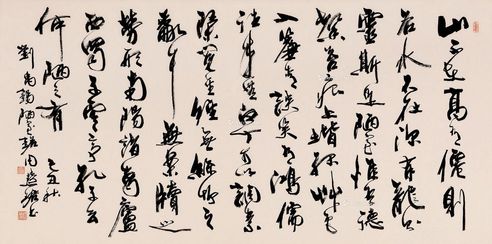 山不在高有僊則
名水不在深有龍則
靈斯是陋室惟吾德
馨苔痕上階綠草色
入簾青談笑有鴻儒
往來無白丁可以調素
琴閱金經無絲竹之
亂耳無案牘之
勞形南陽諸葛廬
西蜀子雲亭孔子云
何陋之有
己丑秋
劉禹錫陋室銘